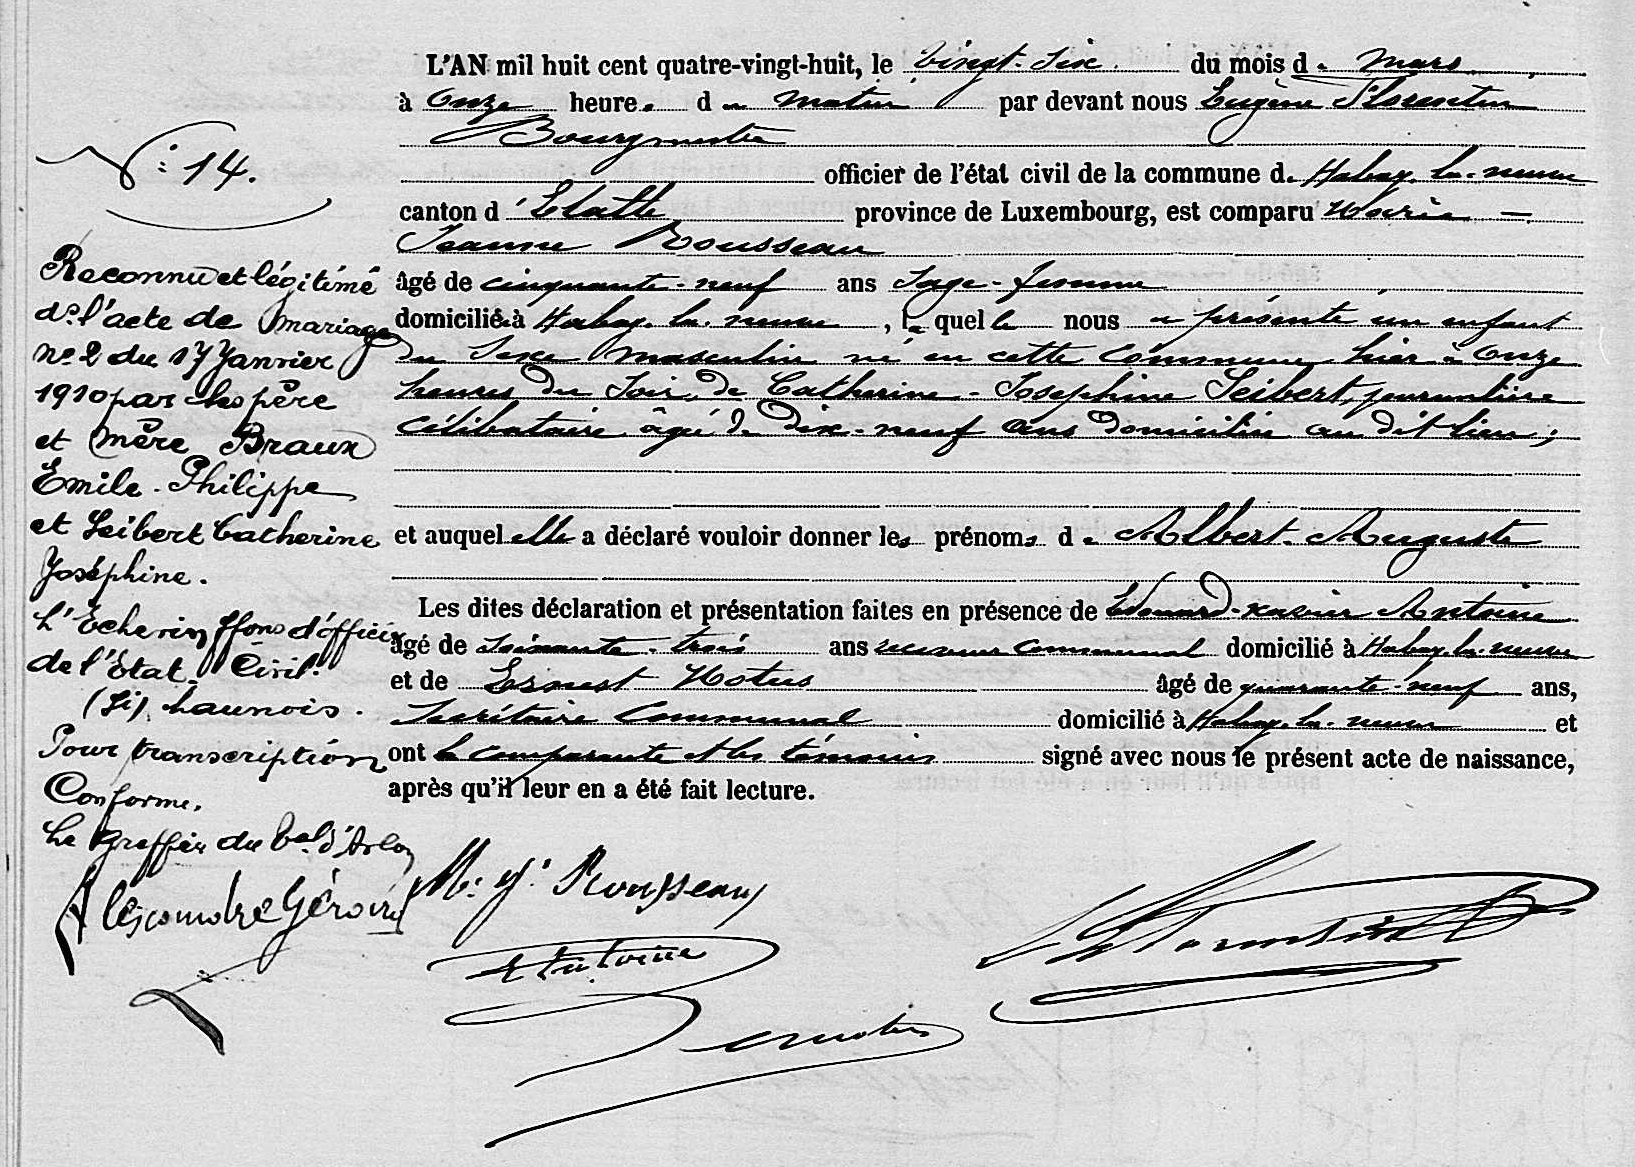 N° 14.
Reconnu et légitimé
ds. l'acte de mariage
n° 2 du 17 Janvier
1910 par les père
et mère Braux
Emile-Philippe
et Seibert Catherine
Joséphine.
L'Echevin ffons d'officier
de l'Etat-Civil.
(Si) Launois.
Pour transcription
Conforme.
Le greffier du bal d'Arlon
L'AN mil huit cent quatre-vingt-huit, le vingt-six du mois de mars
à onze heures du matin par devant nous Eugène Florentin
Bourgmestre
officier de l'état civil de la commune de Habay-la-neuve
canton d'Etalle province de Luxembourg, est comparu Marie
Jeanne Rousseau
âgé de cinquante-neuf ans Sage-femme
domiciliée à Habay-la-neuve, laquelle nous a présenté un enfant
du Sexe masculin né en cette Commune hier à onze
heures du Soir, de Catherine-Josephine Seibert, journalière
célibataire âgée de dix-neuf ans domiciliée au dit lieu;
et auquel elle a déclaré vouloir donner les prénoms de Albert-Auguste
Les dites déclaration et présentation faites en présence de Edouard-xavier Antoine
âgé de soixante-trois ans receveur communal domicilié à Habay-la-neuve
et de Ernest Hotus âgé de quarante-neuf ans,
Secrétaire Communal domicilié à Habay-la-neuve et
ont la comparante et les témoins signé avec nous le présent acte de naissance,
après qu'il leur en a été fait lecture.
M. J. Rousseau
Antoine